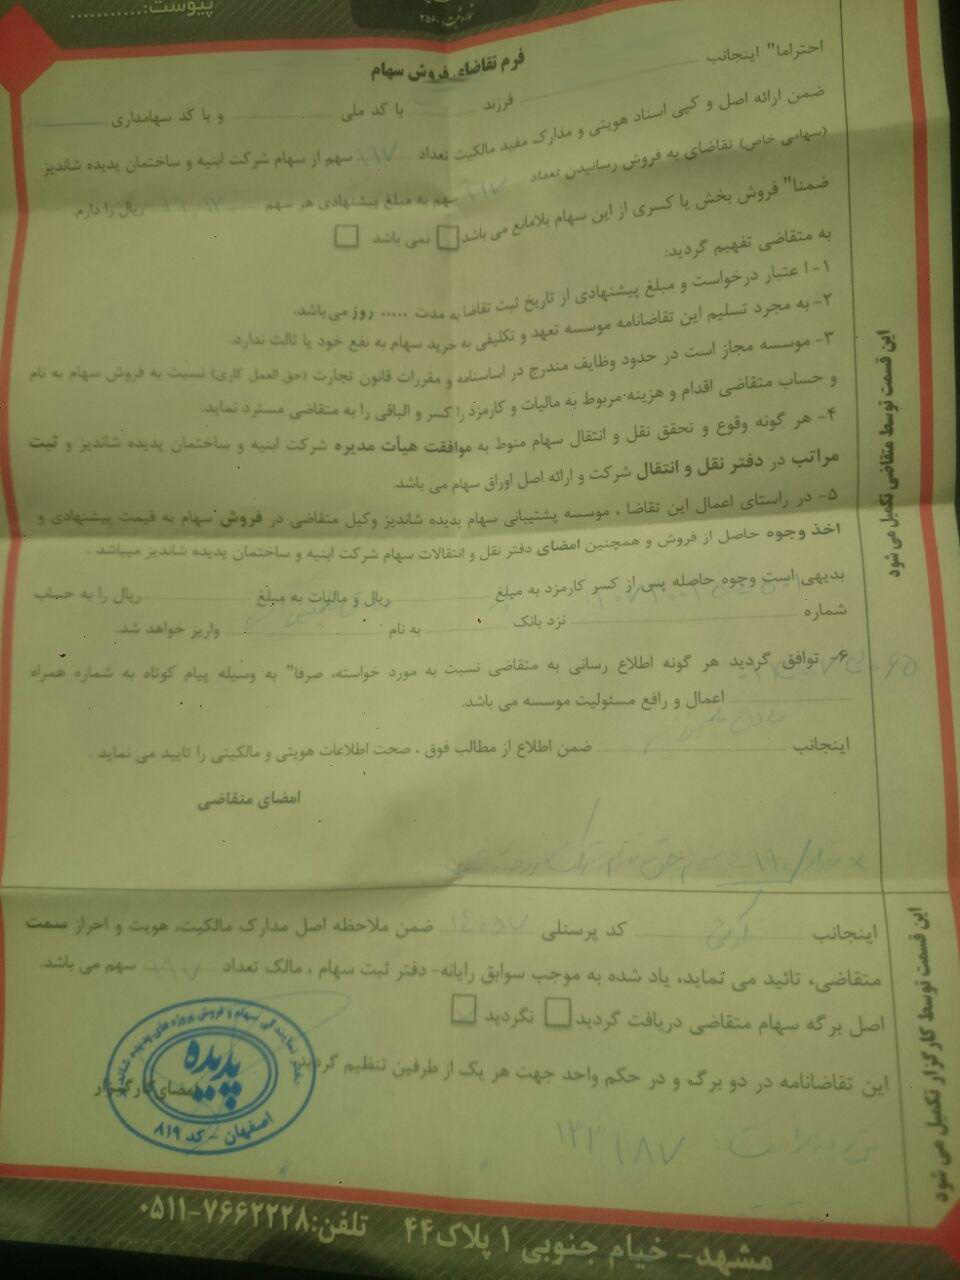 پیوست:............
شماره ثبت: ۲۵۶۰
فرم تقاضای فروش سهام
احتراما" اینجانب فرزند با کد ملی و با کد سهامداری
ضمن ارائه اصل و کپی اسناد هویتی و مدارک مفید مالکیت تعداد سهم از سهام شرکت ابنیه و ساختمان پدیده شاندیز
(سهامی خاص) تقاضای به فروش رسانیدن تعداد سهم به مبلغ پیشنهادی هر سهم ریال را دارم.
ضمنا" فروش بخش یا کسری از این سهام بلامانع می باشد نمی باشد
به متقاضی تفهیم گردید:
۱- اعتبار درخواست و مبلغ پیشنهادی از تاریخ ثبت تقاضا به مدت ..... روز می باشد.
۲- به مجرد تسلیم این تقاضانامه موسسه تعهد و تکلیفی به خرید سهام به نفع خود یا ثالث ندارد.
۳- موسسه مجاز است در حدود وظایف مندرج در اساسنامه و مقررات قانون تجارت (حق العمل کاری) نسبت به فروش سهام به نام
و حساب متقاضی اقدام و هزینه مربوط به مالیات و کارمزد را کسر و الباقی را به متقاضی مسترد نماید.
۴- هر گونه وقوع و تحقق نقل و انتقال سهام منوط به موافقت هیأت مدیره شرکت ابنیه و ساختمان پدیده شاندیز و ثبت
مراتب در دفتر نقل و انتقال شرکت و ارائه اصل اوراق سهام می باشد.
۵- در راستای اعمال این تقاضا ، موسسه پشتیبانی سهام پدیده شاندیز وکیل متقاضی در فروش سهام به قیمت پیشنهادی و
اخذ وجوه حاصل از فروش و همچنین امضای دفتر نقل و انتقالات سهام شرکت ابنیه و ساختمان پدیده شاندیز میباشد .
بدیهی است وجوه حاصله پس از کسر کارمزد به مبلغ ریال و مالیات به مبلغ ریال را به حساب
شماره نزد بانک به نام واریز خواهد شد.
۶- توافق گردید هر گونه اطلاع رسانی به متقاضی نسبت به مورد خواسته، صرفا" به وسیله پیام کوتاه به شماره همراه
اعمال و رافع مسئولیت موسسه می باشد.
اینجانب ضمن اطلاع از مطالب فوق ، صحت اطلاعات هویتی و مالکیتی را تایید می نماید .
امضای متقاضی
این قسمت توسط متقاضی تکمیل می شود
اینجانب کد پرسنلی ضمن ملاحظه اصل مدارک مالکیت، هویت و احراز سمت
متقاضی، تائید می نماید، یاد شده به موجب سوابق رایانه- دفتر ثبت سهام ، مالک تعداد سهم می باشد.
اصل برگه سهام متقاضی دریافت گردید نگردید
این تقاضانامه در دو برگ و در حکم واحد جهت هر یک از طرفین تنظیم گردید.
امضای کارگزار
دفتر نمایندگی سهام و فروش پروژه های پدیده شاندیز
پدیده
اصفهان - کد ۸۱۹
این قسمت توسط کارگزار تکمیل می شود
مشهد- خیام جنوبی ۱ پلاک ۴۴ تلفن: ۷۶۶۲۲۲۸-۰۵۱۱